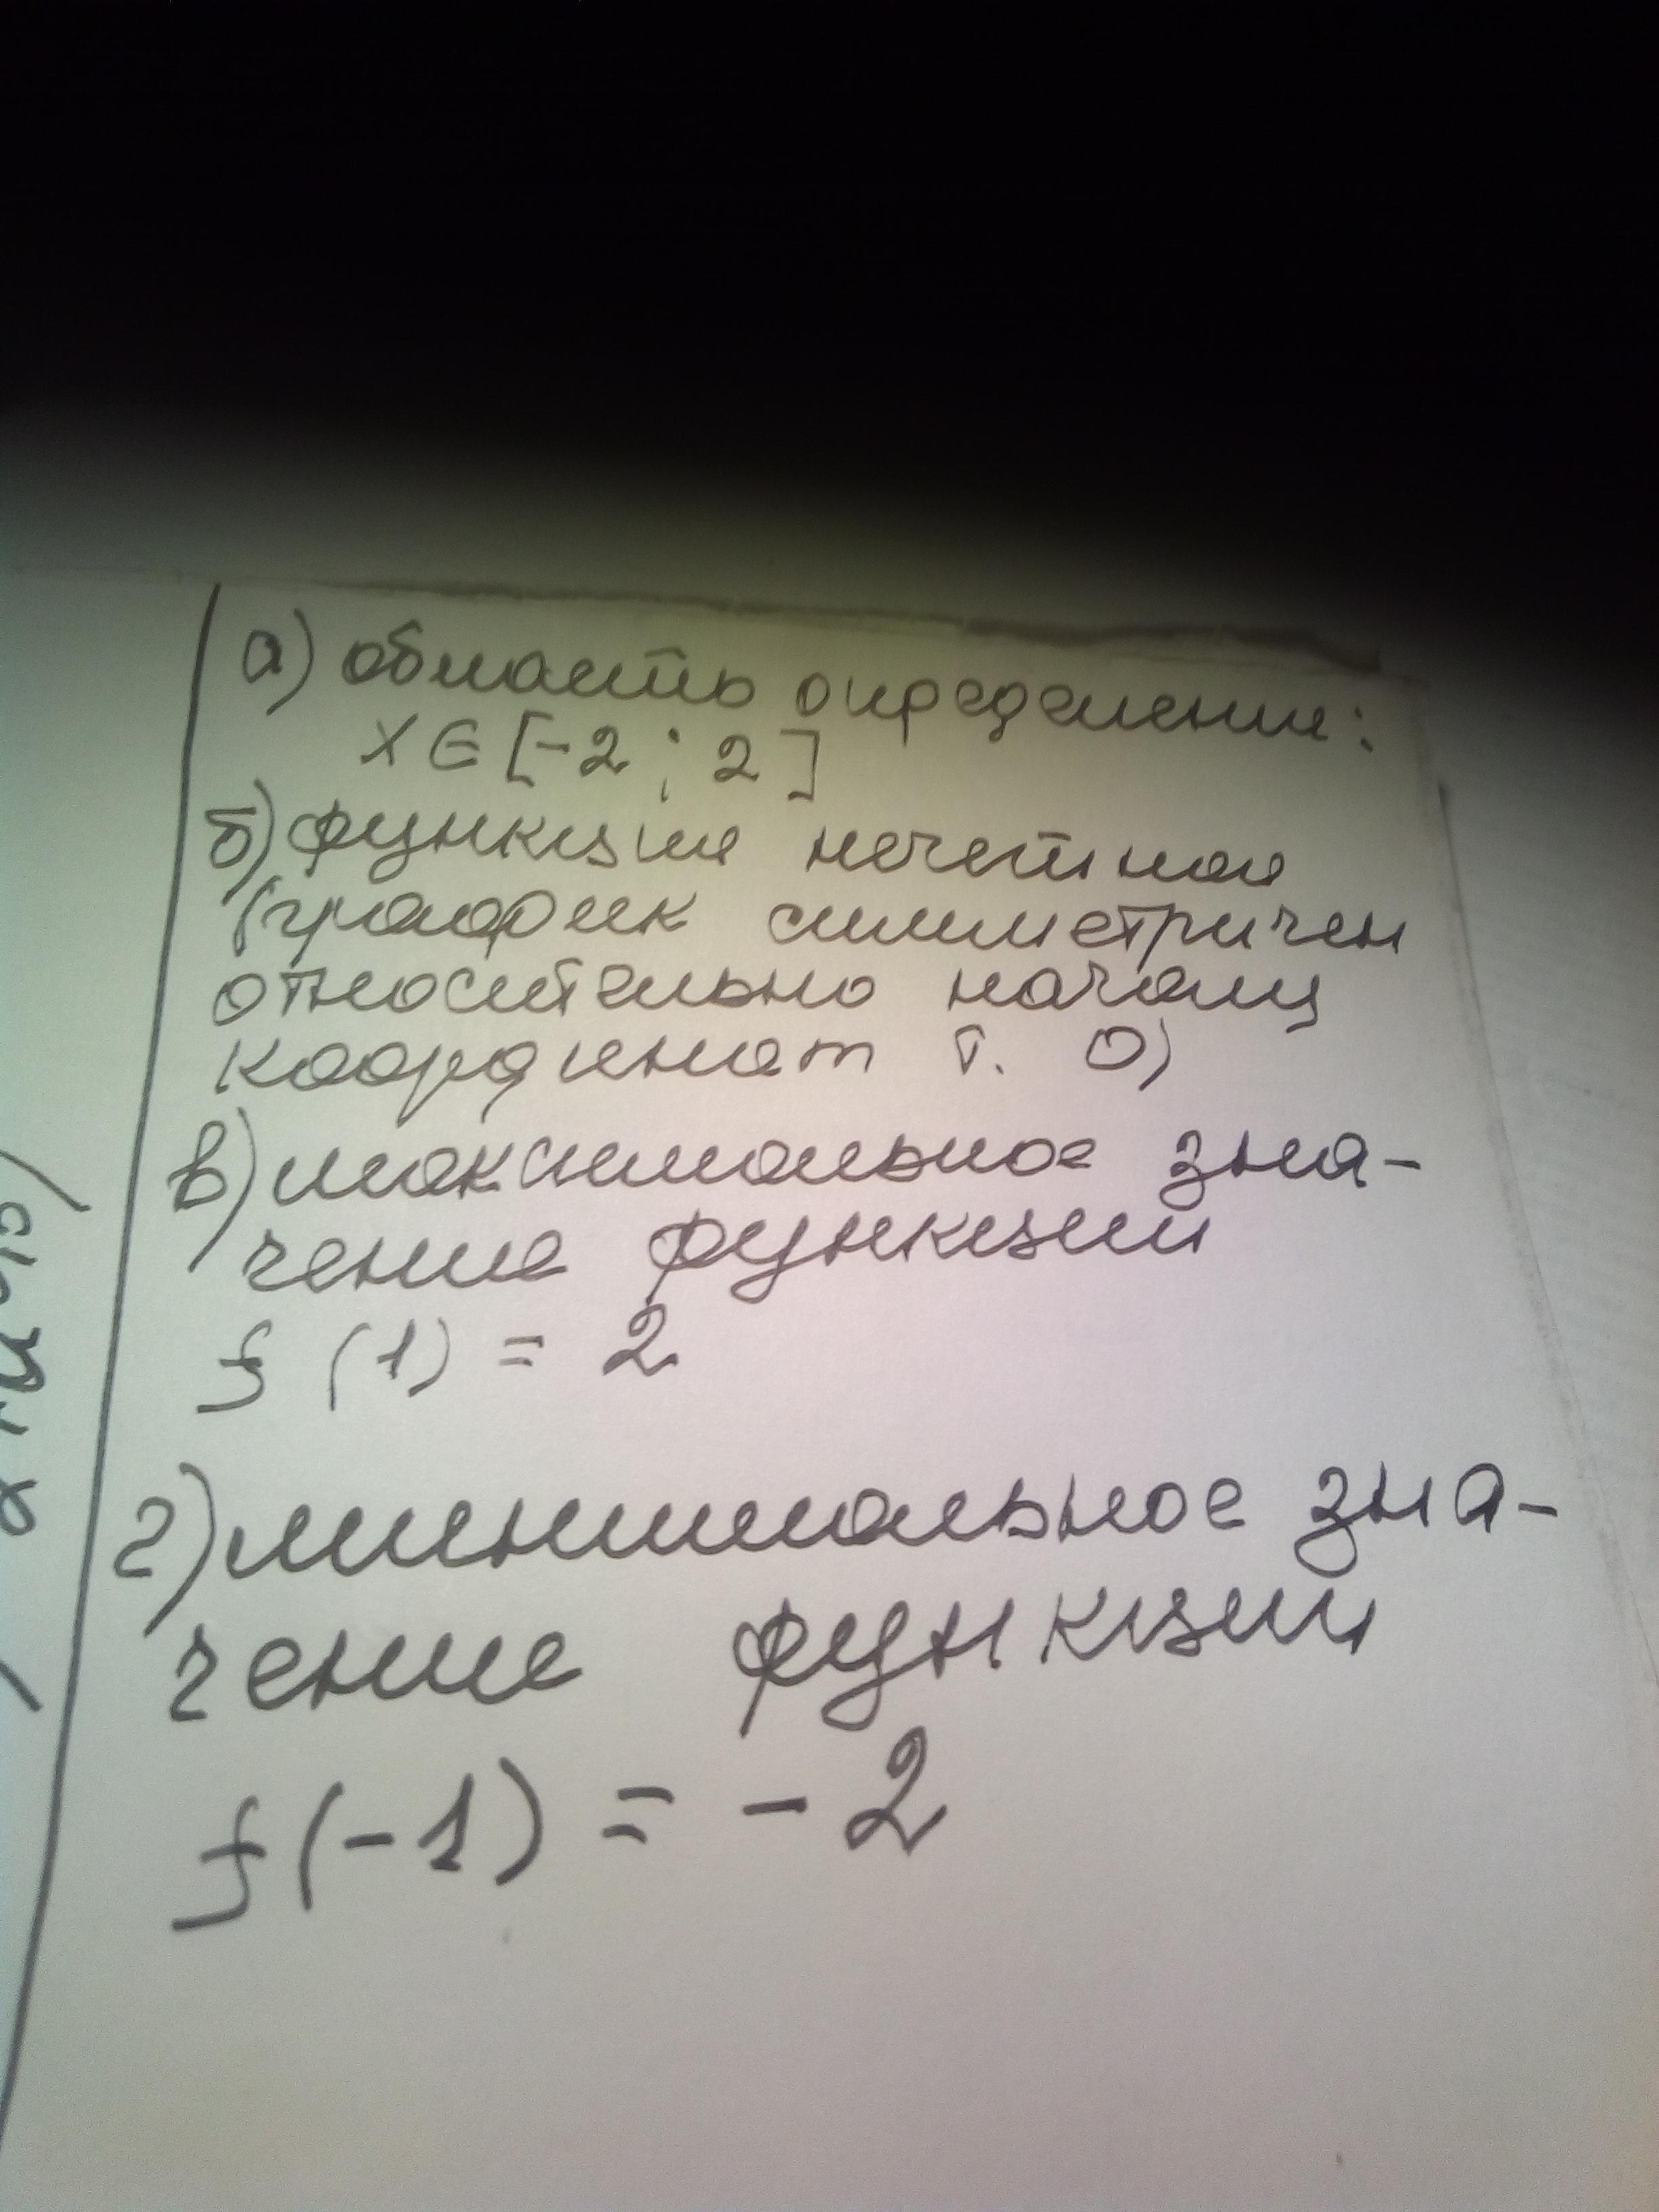 а) область определения:
x ∈ [-2 ; 2]
б) функция нечетная
(график симметричен
относительно начала
координат т. О)
в) максимальное зна-
чение функции
f (1) = 2
г) минимальное зна-
чение функции
f(-1) = -2